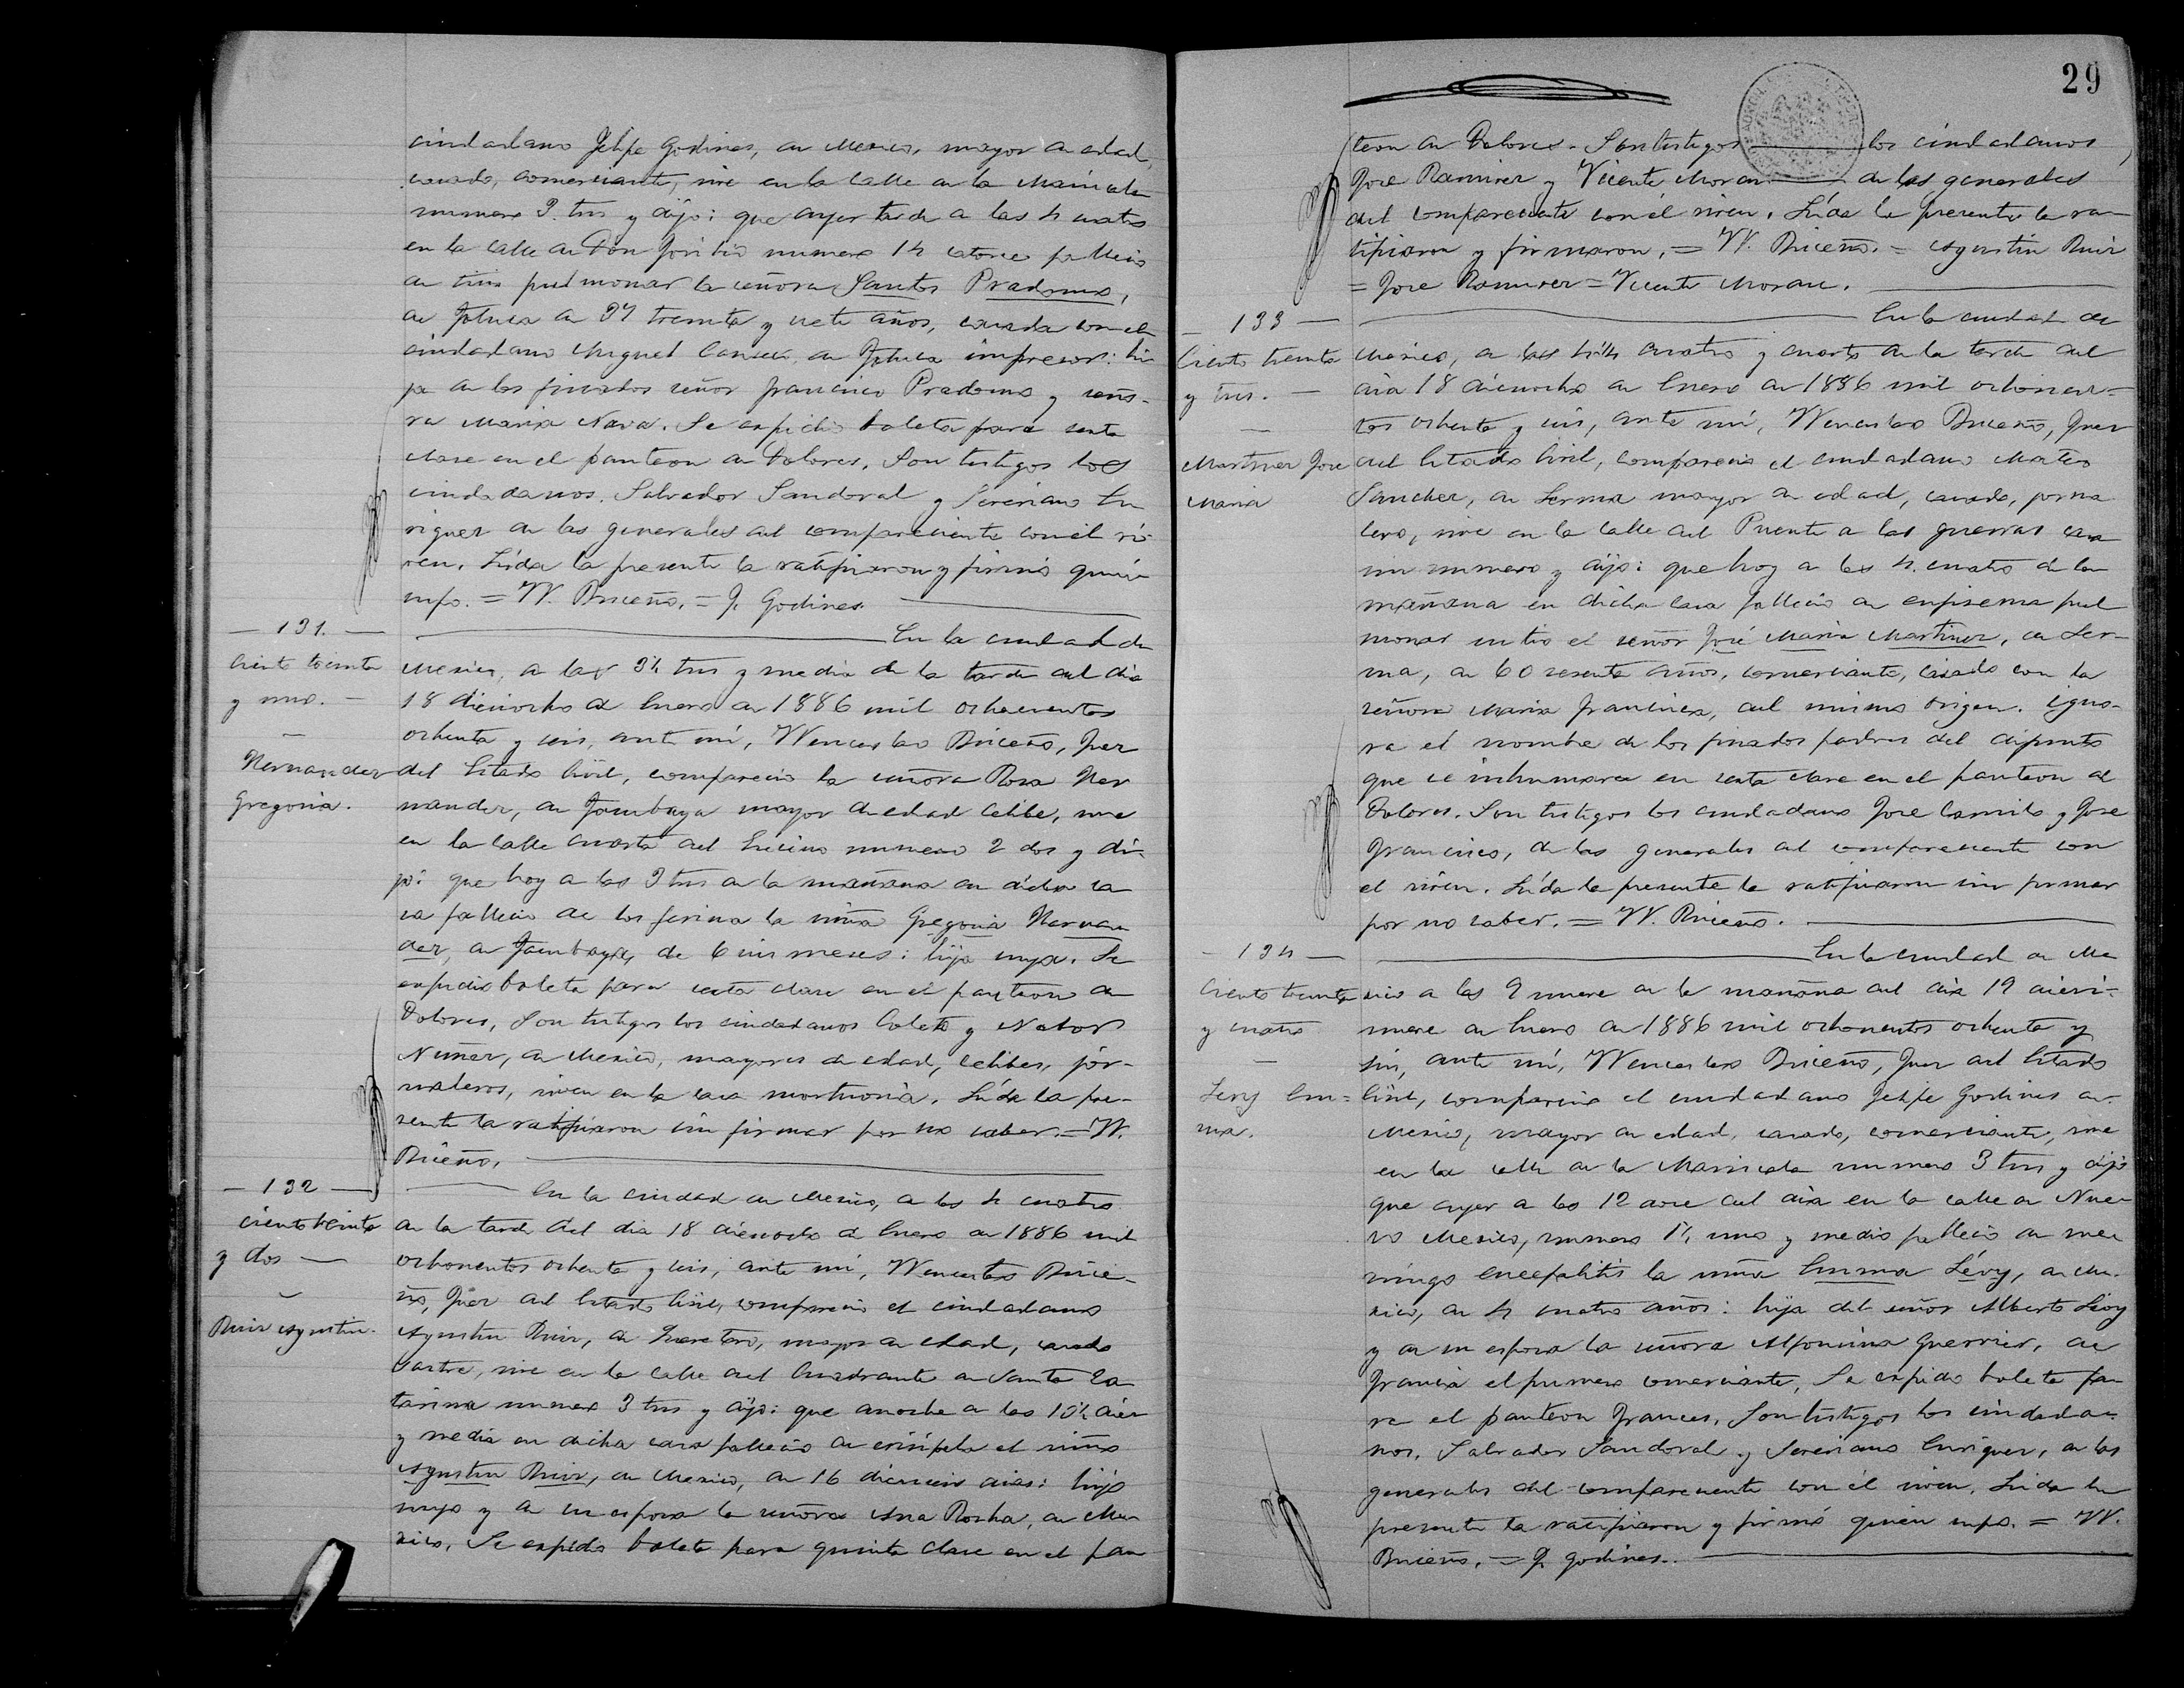 ciudadano Felipe Godines, de Mexico, mayor de edad,
casado, comerciante, vive en la calle de la Mariscala
numero 3. tres y dijo: que ayer tarde a las 4 cuatro
en la calle de Don Toribio numero 14 catorce fallecio
de tisis pulmonar la señora Santos Pradoms,
de Toluca de 37 treinta y siete años, casada con el
ciudadano Miguel de Toluca impresor: hi
ja de los finados señor Francisco Pradoms y seño-
ra Maria Nava. Se expidio boleta para sexta
clase en el panteon de Dolores. Son testigos los
ciudadanos. Salvador Sandoval y Severiano En
riquez de las generales del compareciente con él vi-
ven. Leida la presente la ratificaron y firmó quien
supo. = W. Briceño. = F. Godines
— 131. —
Ciento treinta
y uno. —
—
Hernandez
Gregoria.
En la ciudad de
Mexico, a las 3½ tres y media de la tarde del dia
18 dieciocho de Enero de 1886 mil ochocientos
ochenta y seis, ante mí, Wenceslao Briceño, Juez
del Estado Civil, comparecio la señora Rosa Her
nandez, de Tacubaya mayor de edad celibe, vive
en la calle cuarta del numero 2 dos y di-
jo: que hoy a las 3 tres de la mañana en dicha ca
sa fallecio de tos ferina la niña Gregoria Hernan
dez, de Tacubaya, de 6 seis meses: hija suya. Se
expidio boleta para sexta clase en el panteon de
Dolores, Son testigos los ciudadanos y Nabor
Nuñez, de Mexico, mayores de edad, celibes, jor-
naleros, viven en la casa mortuoria. Leida la pre-
sente la ratificaron sin firmar por no saber. = W.
Briceño.
— 132 —
ciento treinta
y dos —
Ruiz Agustin.
En la ciudad de Mexico, a las 4 cuatro
de la tarde del dia 18 dieciocho de Enero de 1886 mil
ochocientos ochenta y seis, ante mí, Wenceslao Brice-
ño, Juez del Estado Civil, comparecio el ciudadano
Agustin Ruiz, de Queretaro, mayor de edad, casado
sastre, vive en la calle del Cuadrante de Santa Ca
tarina numero 3 tres y dijo: que anoche a las 10½ diez
y media en dicha casa fallecio de erisipela el niño
Agustin Ruiz, de Mexico, de 16 dieciseis dias: hijo
suyo y de su esposa la señora Ana Rocha, de Me
xico. Se expidio boleta para quinta clase en el pan
29
teon de Dolores. Son testigos los ciudadanos
Jose Ramirez y Vicente Moran. de las generales
del compareciente con él viven. Leida la presente la ra-
tificaron y firmaron. = W. Briceño. = Agustin Ruiz
= Jose Ramirez = Vicente Moran.
— 133 —
Ciento treinta
y tres. —
—
Martinez Jose
Maria
En la ciudad de
Mexico, a las 4¼ cuatro y cuarto de la tarde del
dia 18 dieciocho de Enero de 1886 mil ochocien-
tos ochenta y seis, ante mí, Wenceslao Briceño, Juez
del Estado Civil, comparecio el ciudadano Mateo
Sanchez, de Lerma mayor de edad, casado, jorna
lero, vive en la calle del Puente a las guerras casa
sin numero y dijo: que hoy a las 4. cuatro de la
mañana en dicha casa fallecio de enfisema pul
monar su tio el señor José Maria Martinez, de Ler-
ma, de 60 sesenta años, comerciante, casado con la
señora Maria Francisca, del mismo origen. Igno-
ra el nombre de los finados padres del difunto
que se inhumará en sexta clase en el panteon de
Dolores. Son testigos los ciudadanos Jose Camilo y Jose
Francisco, de las generales del compareciente con
el viven. Leida la presente la ratificaron sin firmar
por no saber. = W. Briceño.
— 134 —
Ciento treinta
y cuatro
—
Levy Em-
ma.
En la ciudad de Me
xico a las 9 nueve de la mañana del dia 19 dieci-
nueve de Enero de 1886 mil ochocientos ochenta y
seis, ante mí, Wenceslao Briceño, Juez del Estado
Civil, comparecio el ciudadano Felipe Godines de
Mexico, mayor de edad, casado, comerciante, vive
en la calle de la Mariscala numero 3 tres y dijo
que ayer a las 12 doce del dia en la calle de Nue-
vo Mexico, numero 1½ uno y medio fallecio de me
ningo encefalitis la niña Emma Lévy, de Me-
xico, de 4 cuatro años: hija del señor Alberto Lévy
y de su esposa la señora Alfonsina Guerrier, de
Francia el primero comerciante, Se expidio boleta pa-
ra el panteon Frances. Son testigos los ciudada-
nos, Salvador Sandoval y Severiano Enriquez, de las
generales del compareciente con él viven. Leida la
presente la ratificaron y firmó quien supo. = W.
Briceño. = F. Godines.